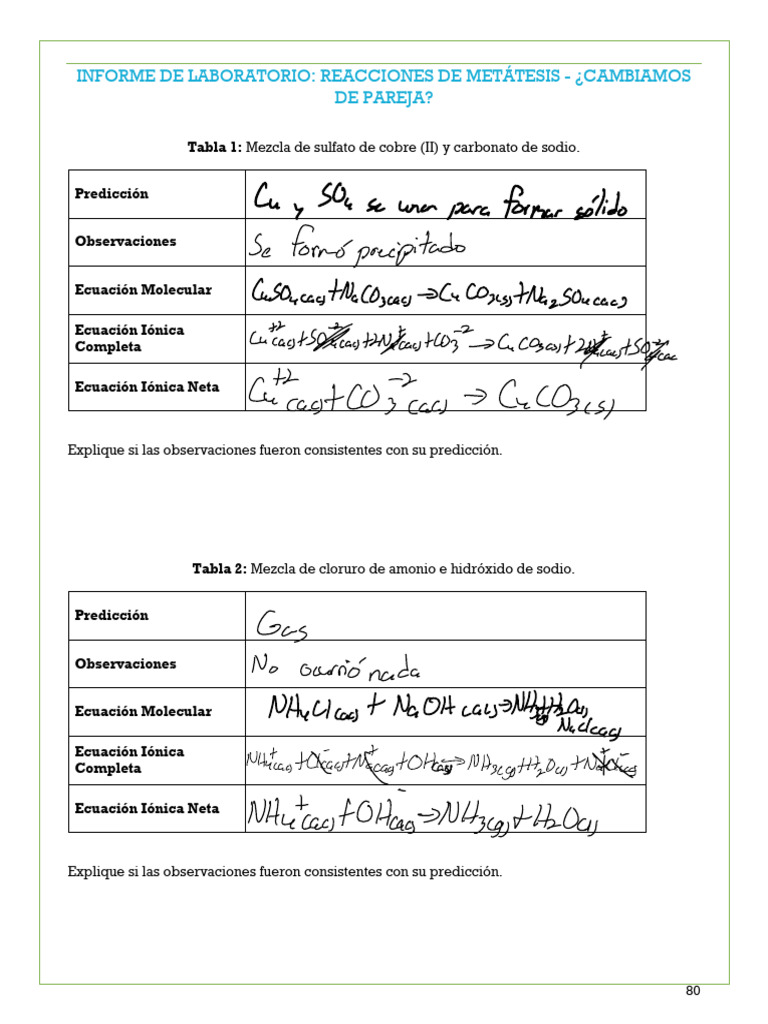 INFORME DE LABORATORIO: REACCIONES DE METÁTESIS - ¿CAMBIAMOS
DE PAREJA?
Tabla 1: Mezcla de sulfato de cobre (II) y carbonato de sodio.
Predicción
Cu y SO4 se unen para formar sólido
Observaciones
Se formó precipitado
Ecuación Molecular
CuSO4(ac)+NaCO3(ac)→CuCO3(s)+Na2SO4(ac)
Ecuación Iónica
Completa
Cu+2(ac)+SO4-2(ac)+2Na+(ac)+CO3-2→CuCO3(s)+2Na+(ac)+SO4-2(ac
Ecuación Iónica Neta
Cu+2(ac)+CO3-2(ac)→CuCO3(s)
Explique si las observaciones fueron consistentes con su predicción.
Tabla 2: Mezcla de cloruro de amonio e hidróxido de sodio.
Predicción
Gas
Observaciones
No ocurrió nada
Ecuación Molecular
NH4Cl(ac)+NaOH(ac)→NH3+H2O(l)
NaCl(ac)
Ecuación Iónica
Completa
NH4+(ac)+Cl-(ac)+Na+(ac)+OH-(ac)→NH3(g)+H2O(l)+Na+
Ecuación Iónica Neta
NH4+(ac)+OH-(ac)→NH3(g)+H2O(l)
Explique si las observaciones fueron consistentes con su predicción.
80